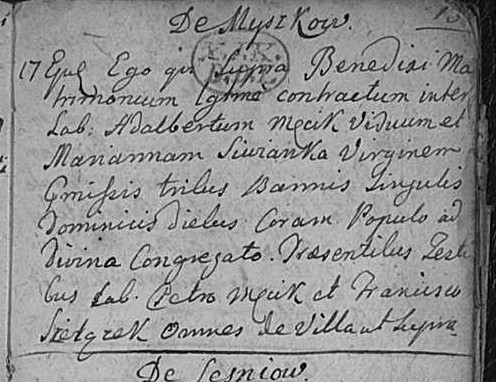 De Myszkow.
13
17 Ejusd Ego qui Supra Benedixi Ma
trimonium Lgitime contractum inter
Lab: Adalbertum Mecik Viduum et
Mariannam Siwianka Virginem
Pmissis tribus Bannis Singulis
Dominicis diebus Coram Populo ad
Divina Congregato. Præsentibus Testi
bus Lab. Petro Mecik et Francisco
omnes de Villa ut Supra
De Lesniow.